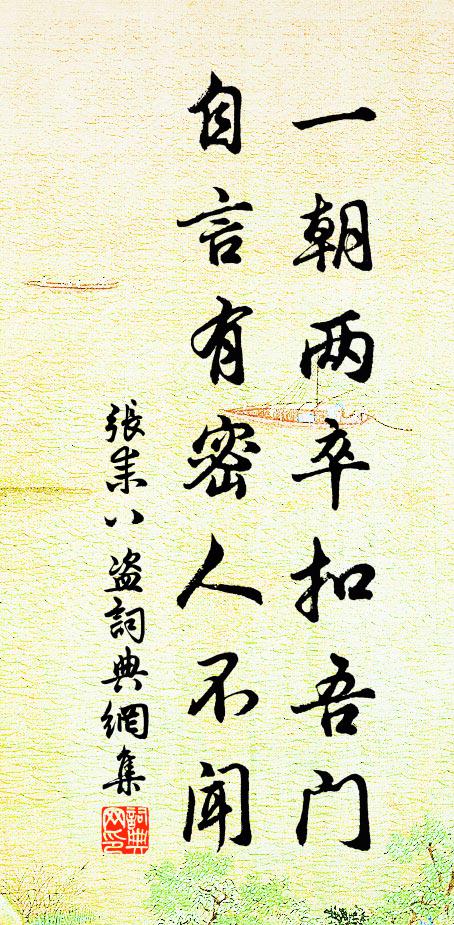 一朝两卒扣吾门
自言有密人不闻
張耒八盗詞典網集
詞典网印